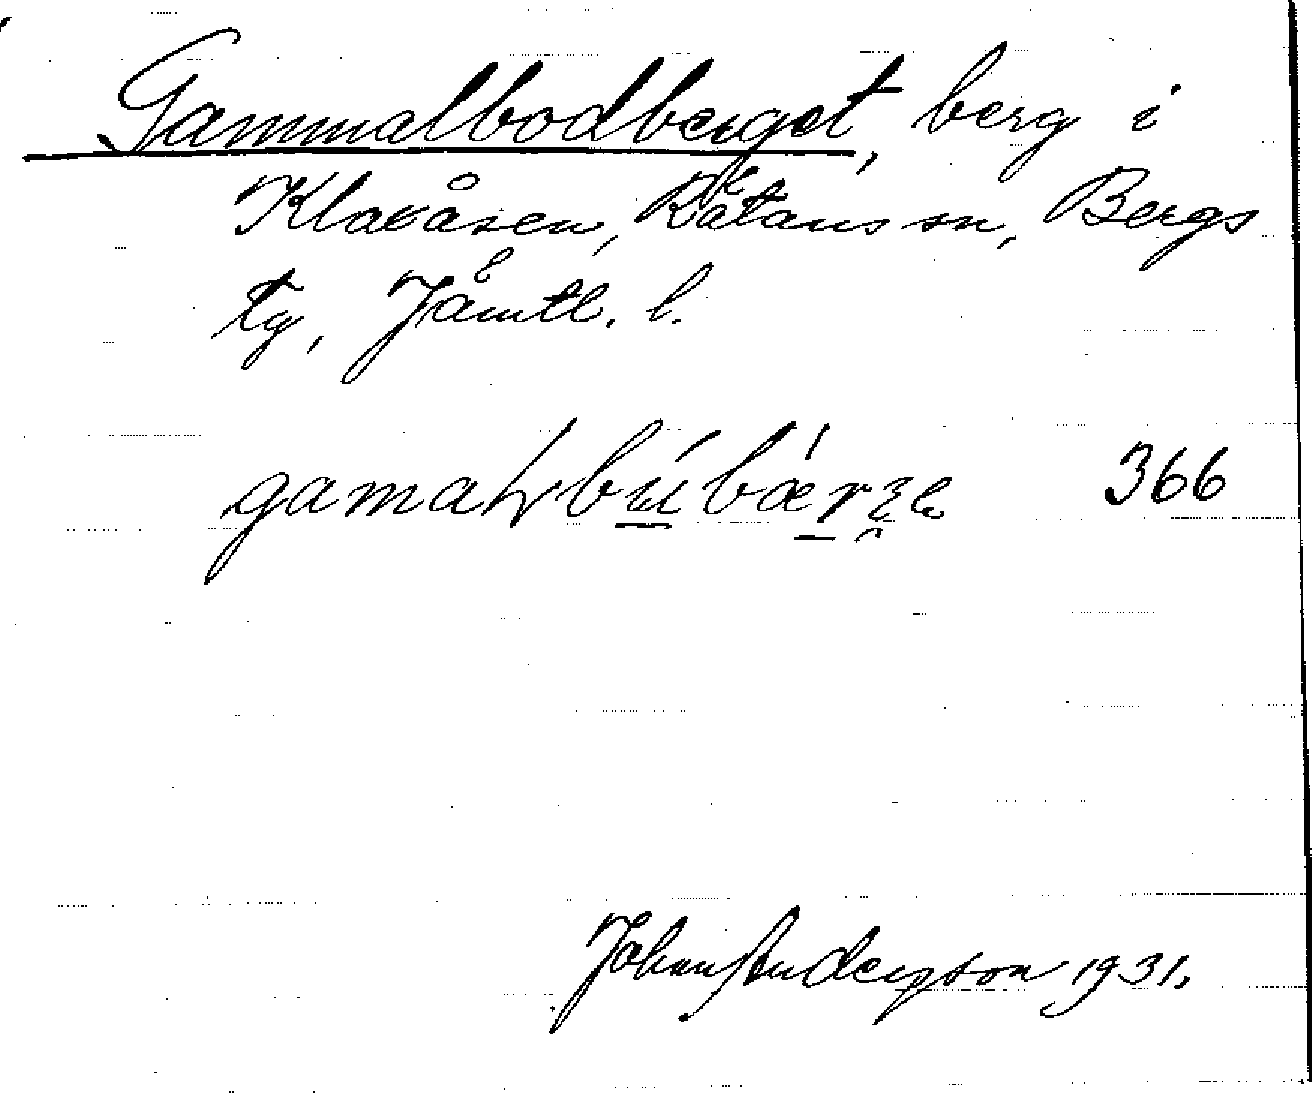 Gammalbodberget, berg i
Klavåsen, Rätans sn, Bergs
tg, Jämtl. l.
366
Johan Anderson 1931.